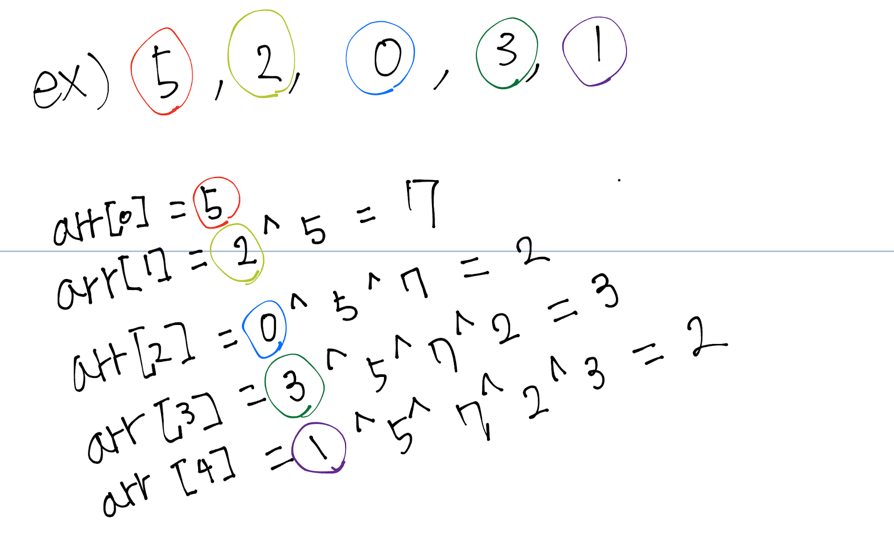 ex) 5, 2, 0, 3, 1
arr[0] = 5
arr[1] = 2 ^ 5 = 7
arr[2] = 0 ^ 5 ^ 7 = 2
arr[3] = 3 ^ 5 ^ 7 ^ 2 = 3
arr[4] = 1 ^ 5 ^ 7 ^ 2 ^ 3 = 2